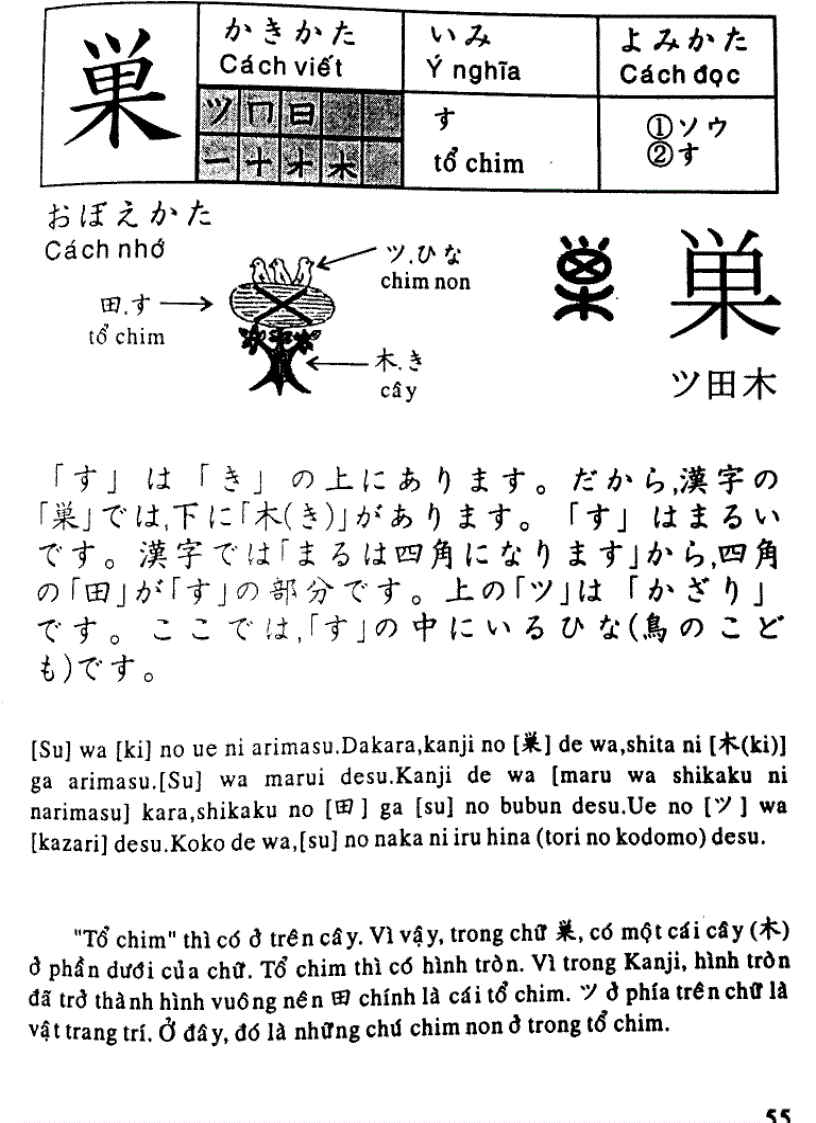 巣
かきかた
Cách viết
いみ
Ý nghĩa
よみかた
Cách đọc
ツ 冂 日
一 十 オ 木
す
tổ chim
①ソウ
②す
おぼえかた
Cách nhớ
ツ.ひな
chim non
田.す
tổ chim
木.き
cây
巣
ツ田木
「す」は「き」の上にあります。だから,漢字の
「巣」では,下に「木(き)」があります。「す」はまるい
です。漢字では「まるは四角になります」から,四角
の「田」が「す」の部分です。上の「ツ」は「かざり」
です。ここでは,「す」の中にいるひな(鳥のこど
も)です。
[Su] wa [ki] no ue ni arimasu.Dakara,kanji no [巣] de wa,shita ni [木(ki)]
ga arimasu.[Su] wa marui desu.Kanji de wa [maru wa shikaku ni
narimasu] kara,shikaku no [田] ga [su] no bubun desu.Ue no [ツ] wa
[kazari] desu.Koko de wa,[su] no naka ni iru hina (tori no kodomo) desu.
"Tổ chim" thì có ở trên cây. Vì vậy, trong chữ 巣, có một cái cây (木)
ở phần dưới của chữ. Tổ chim thì có hình tròn. Vì trong Kanji, hình tròn
đã trở thành hình vuông nên 田 chính là cái tổ chim. ツ ở phía trên chữ là
vật trang trí. Ở đây, đó là những chú chim non ở trong tổ chim.
55